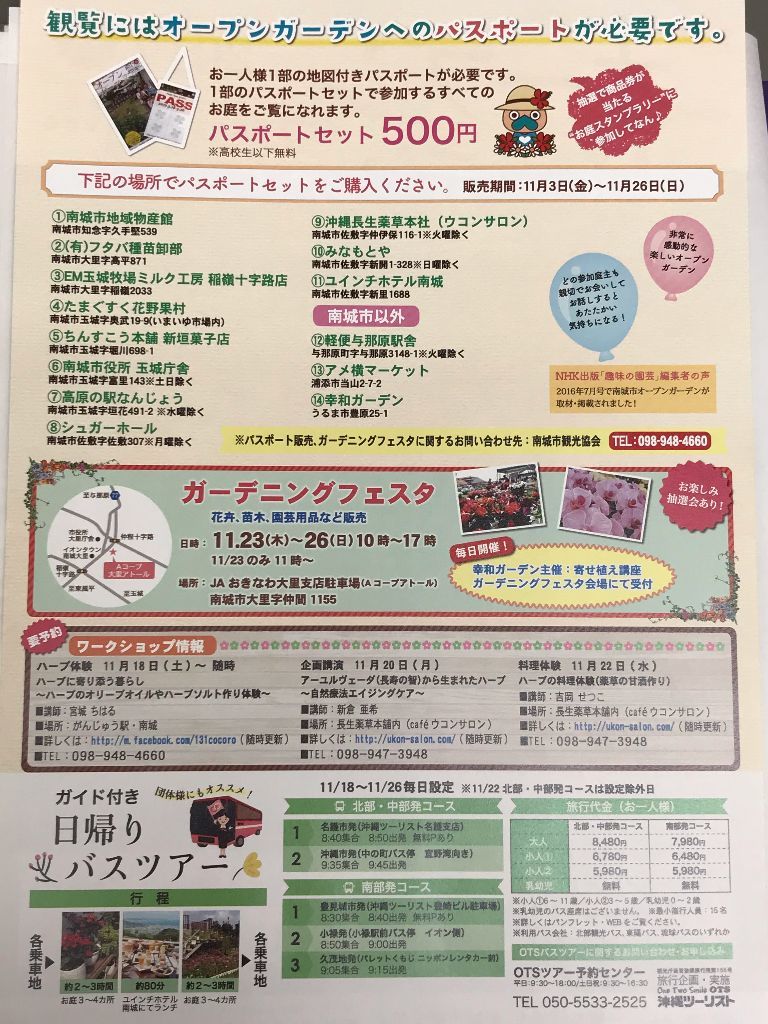 観覧にはオープンガーデンへのパスポートが必要です。
PASS
お一人様1部の地図付きパスポートが必要です。
1部のパスポートセットで参加するすべての
お庭をご覧になれます。
パスポートセット 500円
※高校生以下無料
抽選で商品券が
当たる
"お庭スタンプラリー"に
参加してなん♪
下記の場所でパスポートセットをご購入ください。 販売期間：11月3日(金)〜11月26日(日)
①南城市地域物産館
南城市知念字久手堅539
②(有)フタバ種苗卸部
南城市大里字高平871
③EM玉城牧場ミルク工房 稲嶺十字路店
南城市大里字稲嶺2033
④たまぐすく花野果村
南城市玉城字奥武19-9(いまいゆ市場内)
⑤ちんすこう本舗 新垣菓子店
南城市玉城字堀川698-1
⑥南城市役所 玉城庁舎
南城市玉城字富里143※土日除く
⑦高原の駅なんじょう
南城市玉城字垣花491-2 ※水曜除く
⑧シュガーホール
南城市佐敷字佐敷307※月曜除く
⑨沖縄長生薬草本社（ウコンサロン）
南城市佐敷字仲伊保116-1※火曜除く
⑩みなもとや
南城市佐敷字新開1-328※日曜除く
⑪ユインチホテル南城
南城市佐敷字新里1688
南城市以外
⑫軽便与那原駅舎
与那原町字与那原3148-1※火曜除く
⑬アメ横マーケット
浦添市当山2-7-2
⑭幸和ガーデン
うるま市豊原25-1
非常に
感動的な
楽しいオープン
ガーデン
どの参加庭主も
親切でお会いして
お話しすると
あたたかい
気持ちになる！
NHK出版「趣味の園芸」編集者の声
2016年7月号で南城市オープンガーデンが
取材・掲載されました！
※パスポート販売、ガーデニングフェスタに関するお問い合わせ先：南城市観光協会 TEL：098-948-4660
至与那原
市役所
大里庁舎
仲程十字路
イオンタウン
南城大里
稲嶺
十字路
Aコープ
大里アトール
至東風平
至玉城
ガーデニングフェスタ
花卉、苗木、園芸用品など販売
日時：11.23(木)〜26(日)10時〜17時
11/23のみ11時〜
場所：JAおきなわ大里支店駐車場(Aコープアトール)
南城市大里字仲間1155
お楽しみ
抽選会あり！
毎日開催！
幸和ガーデン主催：寄せ植え講座
ガーデニングフェスタ会場にて受付
要予約
ワークショップ情報
ハーブ体験 11月18日(土)〜 随時
ハーブに寄り添う暮らし
〜ハーブのオリーブオイルやハーブソルト作り体験〜
■講師：宮城 ちはる
■場所：がんじゅう駅・南城
■詳しくは：http://m.facebook.com/131cocoro（随時更新）
■TEL：098-948-4660
企画講演 11月20日(月)
アーユルヴェーダ(長寿の智)から生まれたハーブ
〜自然療法エイジングケア〜
■講師：新倉 亜希
■場所：長生薬草本舗内（caféウコンサロン）
■詳しくは：http://ukon-salon.com/（随時更新）
■TEL：098-947-3948
料理体験 11月22日(水)
ハーブの料理体験(薬草の甘酒作り)
■講師：吉岡 せつこ
■場所：長生薬草本舗内（caféウコンサロン）
■詳しくは：http://ukon-salon.com/（随時更新）
■TEL：098-947-3948
ガイド付き
団体様にもオススメ！
日帰り
バスツアー
行程
各乗車地
約2〜3時間
お庭3〜4カ所
約80分
ユインチホテル
南城にてランチ
約2〜3時間
お庭3〜4カ所
各乗車地
11/18〜11/26毎日設定 ※11/22 北部・中部発コースは設定除外日
北部・中部発コース
1 名護市発(沖縄ツーリスト名護支店)
8:40集合 8:50出発 無料Pあり
2 沖縄市発(中の町バス停 宜野湾向き)
9:35集合 9:45出発
南部発コース
1 豊見城市発(沖縄ツーリスト豊崎ビル駐車場)
8:30集合 8:40出発 無料Pあり
2 小禄発(小禄駅前バス停 イオン側)
8:50集合 9:00出発
3 久茂地発(パレットくもじ ニッポンレンタカー前)
9:05集合 9:15出発
旅行代金（お一人様）
北部・中部発コース 南部発コース
大人 8,480円 7,980円
小人① 6,780円 6,480円
小人② 5,980円 5,980円
乳幼児 無料 無料
※小人①6〜11歳／小人②3〜5歳／乳幼児0〜2歳
※乳幼児のバス座席はございません。 ※最小催行人員：15名
※詳しくはパンフレット・WEBをご覧ください。
※利用バス会社：北部観光バス、東陽バス、琉球バスのいずれか
OTSバスツアーに関するお問い合わせ・お申し込み
OTSツアー予約センター
平日：9:30〜18:00/土日祝：9:30〜16:30
TEL 050-5533-2525
旅行企画・実施
One Two Smile OTS
沖縄ツーリスト